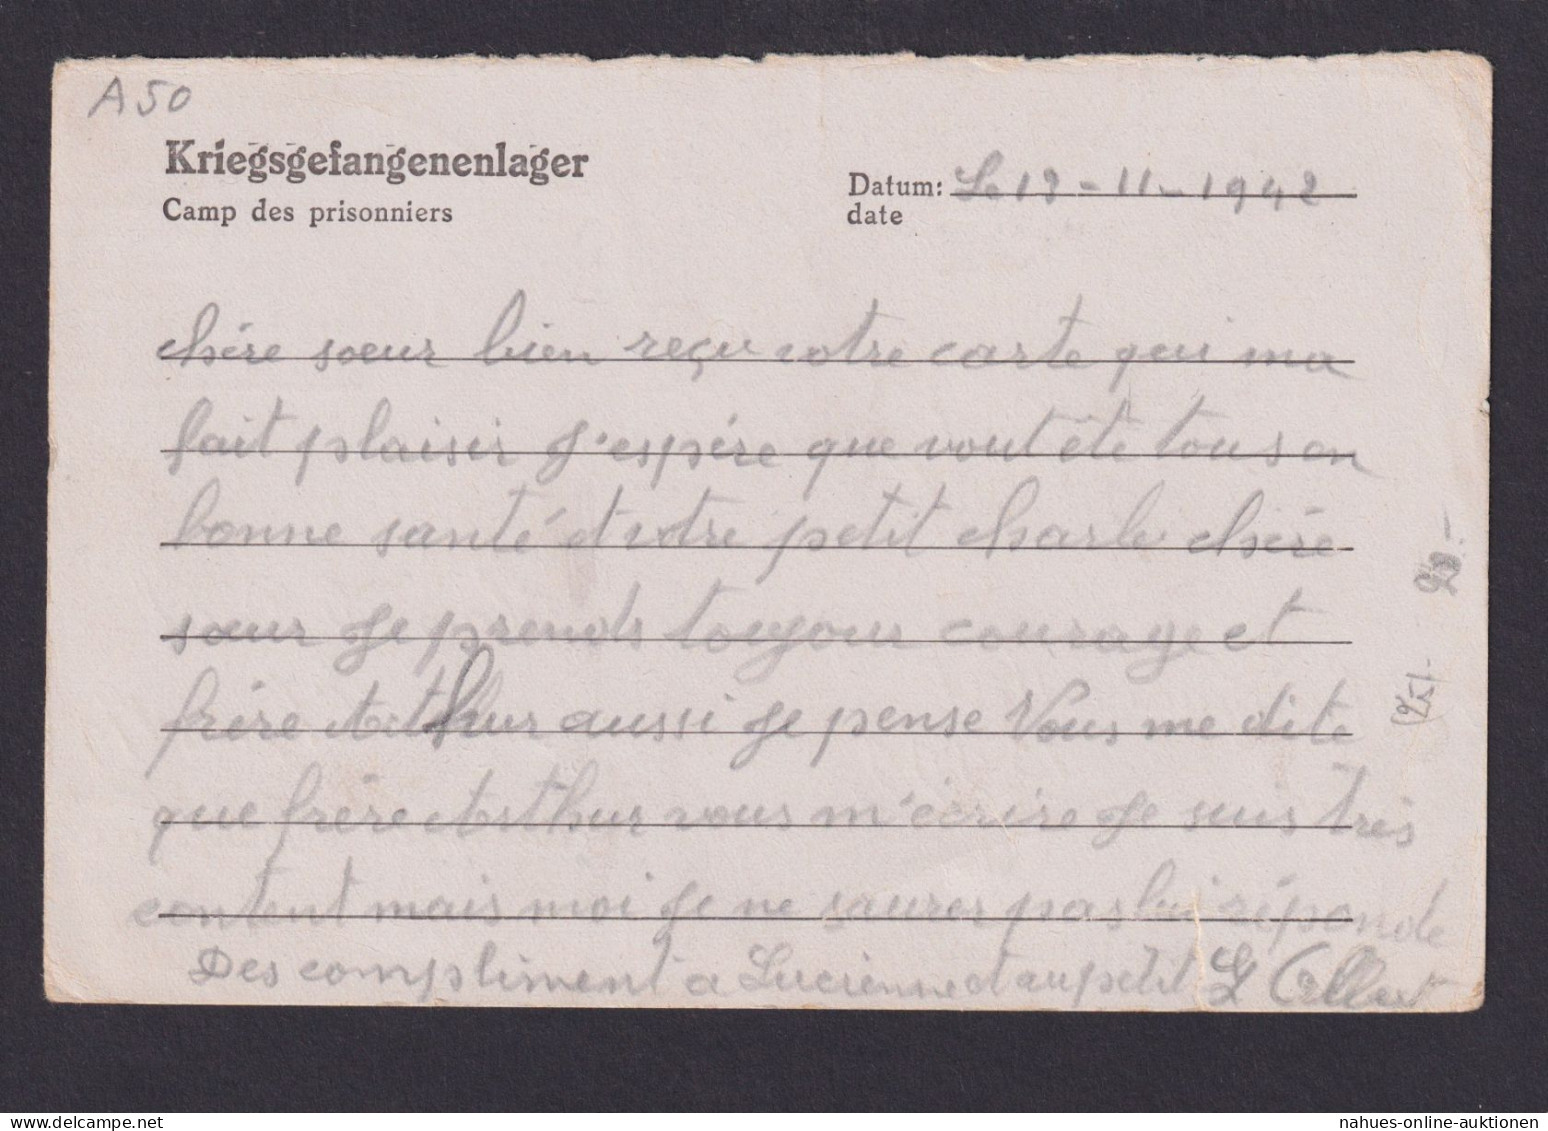 A 50
Kriegsgefangenenlager
Camp des prisonniers
Datum: Le 19-11-1942
date
chère soeur bien reçu votre carte qui ma
fait plaisir J'espére que vout éte tous en
bonne santé et votre petit charle chére
sœur Je prends toujour courage et
frère Arthur aussi Je pense Vous me dite
que frère Arthur vous m'écrire Je suis très
content mais moi Je ne saures pas lui réponde
Des compliment a Lucienne et au petit
20.-
(25)-
nahues-online-auktionen